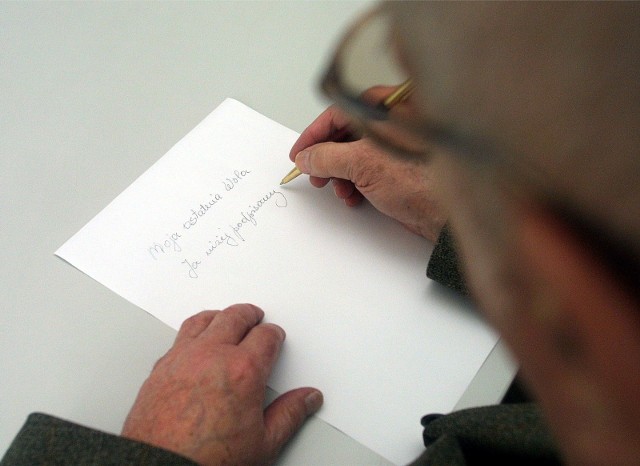 Moja ostatnia Wola
Ja niżej podpisany